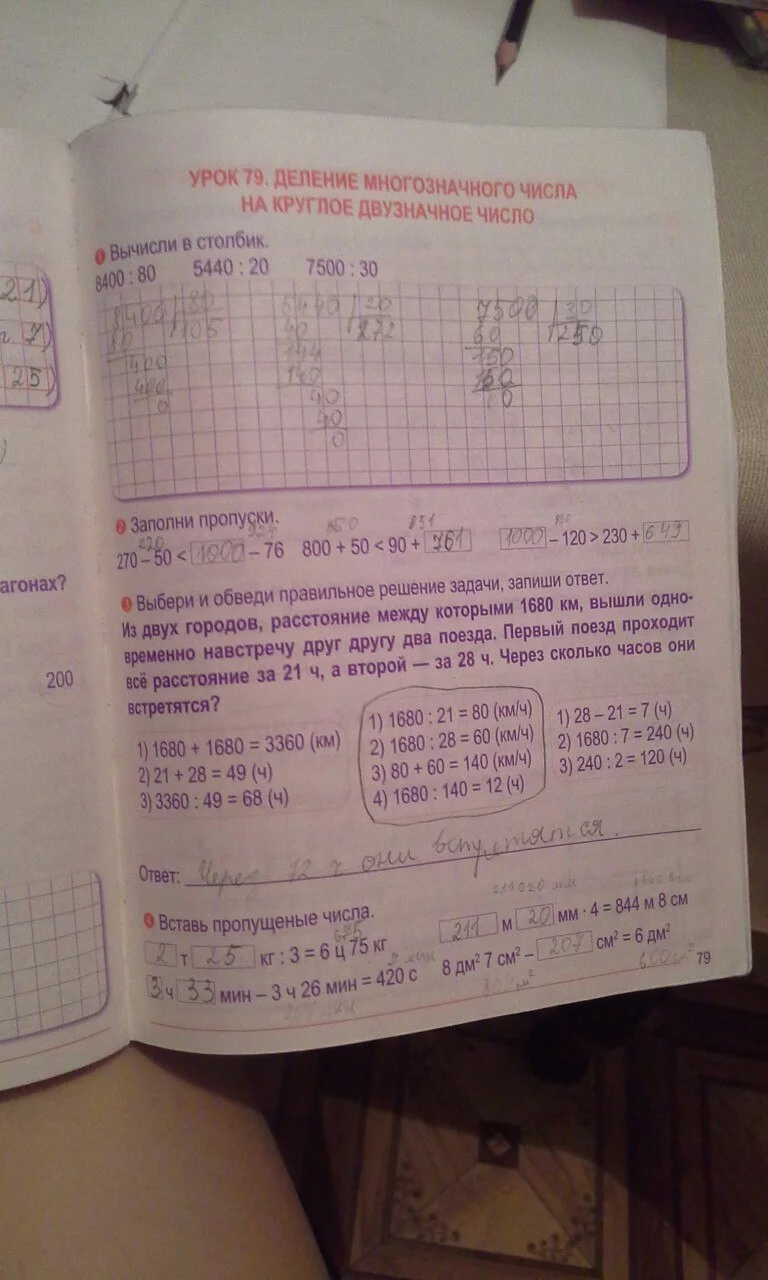 21)
г. 7)
25)
агонах?
200
УРОК 79. ДЕЛЕНИЕ МНОГОЗНАЧНОГО ЧИСЛА
НА КРУГЛОЕ ДВУЗНАЧНОЕ ЧИСЛО
1 Вычисли в столбик.
8400 : 80 5440 : 20 7500 : 30
8400 80 5440 20 7500 30
80 105 40 272 60 250
400 144 150
400 140 150
0 40 0
40
0
2 Заполни пропуски.
220 924 850 851 880
270 – 50 < 1000 – 76 800 + 50 < 90 + 761 1000 – 120 > 230 + 649
3 Выбери и обведи правильное решение задачи, запиши ответ.
Из двух городов, расстояние между которыми 1680 км, вышли одно-
временно навстречу друг другу два поезда. Первый поезд проходит
всё расстояние за 21 ч, а второй — за 28 ч. Через сколько часов они
встретятся?
1) 1680 + 1680 = 3360 (км)
2) 21 + 28 = 49 (ч)
3) 3360 : 49 = 68 (ч)
1) 1680 : 21 = 80 (км/ч)
2) 1680 : 28 = 60 (км/ч)
3) 80 + 60 = 140 (км/ч)
4) 1680 : 140 = 12 (ч)
1) 28 – 21 = 7 (ч)
2) 1680 : 7 = 240 (ч)
3) 240 : 2 = 120 (ч)
Ответ: Через 12 ч они встретятся.
4 Вставь пропущеные числа.
211020 мм
675
2 т 25 кг : 3 = 6 ц 75 кг
211 м 20 мм · 4 = 844 м 8 см
7 мин
3 ч 33 мин – 3 ч 26 мин = 420 с
8 дм² 7 см² – 207 см² = 6 дм²
807 см² 600 см²
79